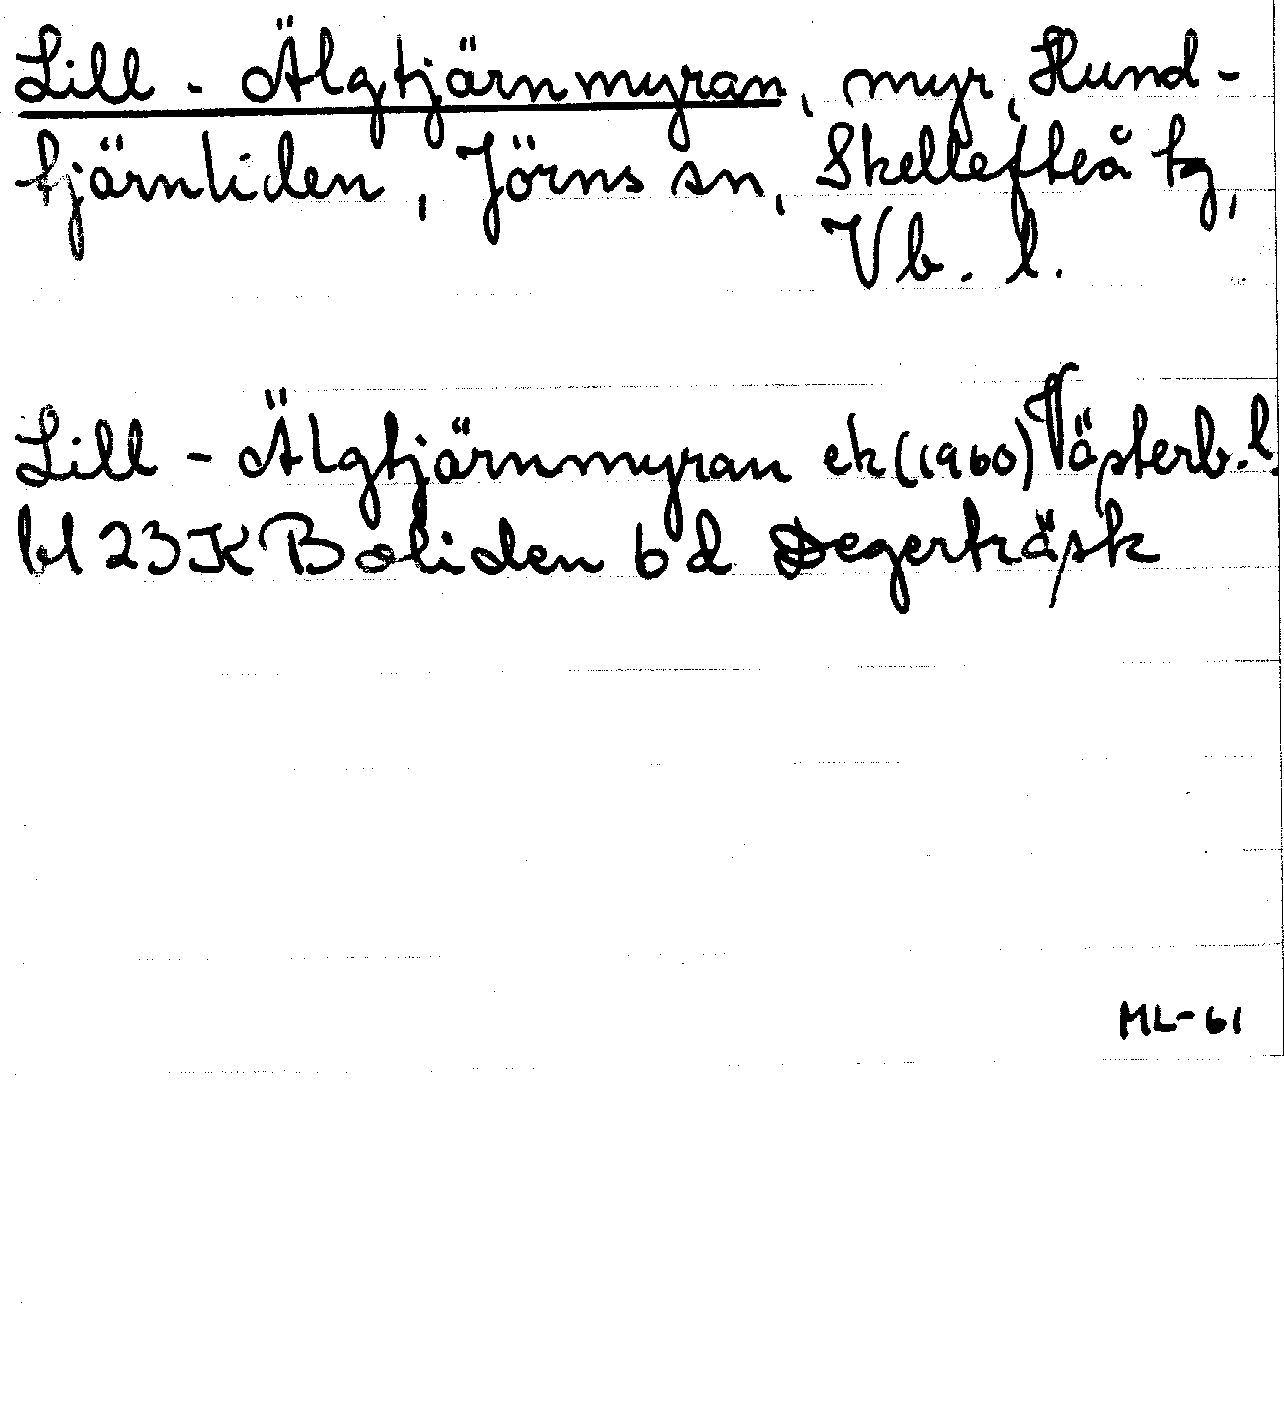 Lill-Älgtjärnmyran, myr, Hund-
tjärnliden, Jörns sn, Skellefteå tg,
Vb. l.
Lill-Älgtjärnmyran ek (1960) Västerb. l.
bl 23K Boliden 6 d Degerträsk
ML-61